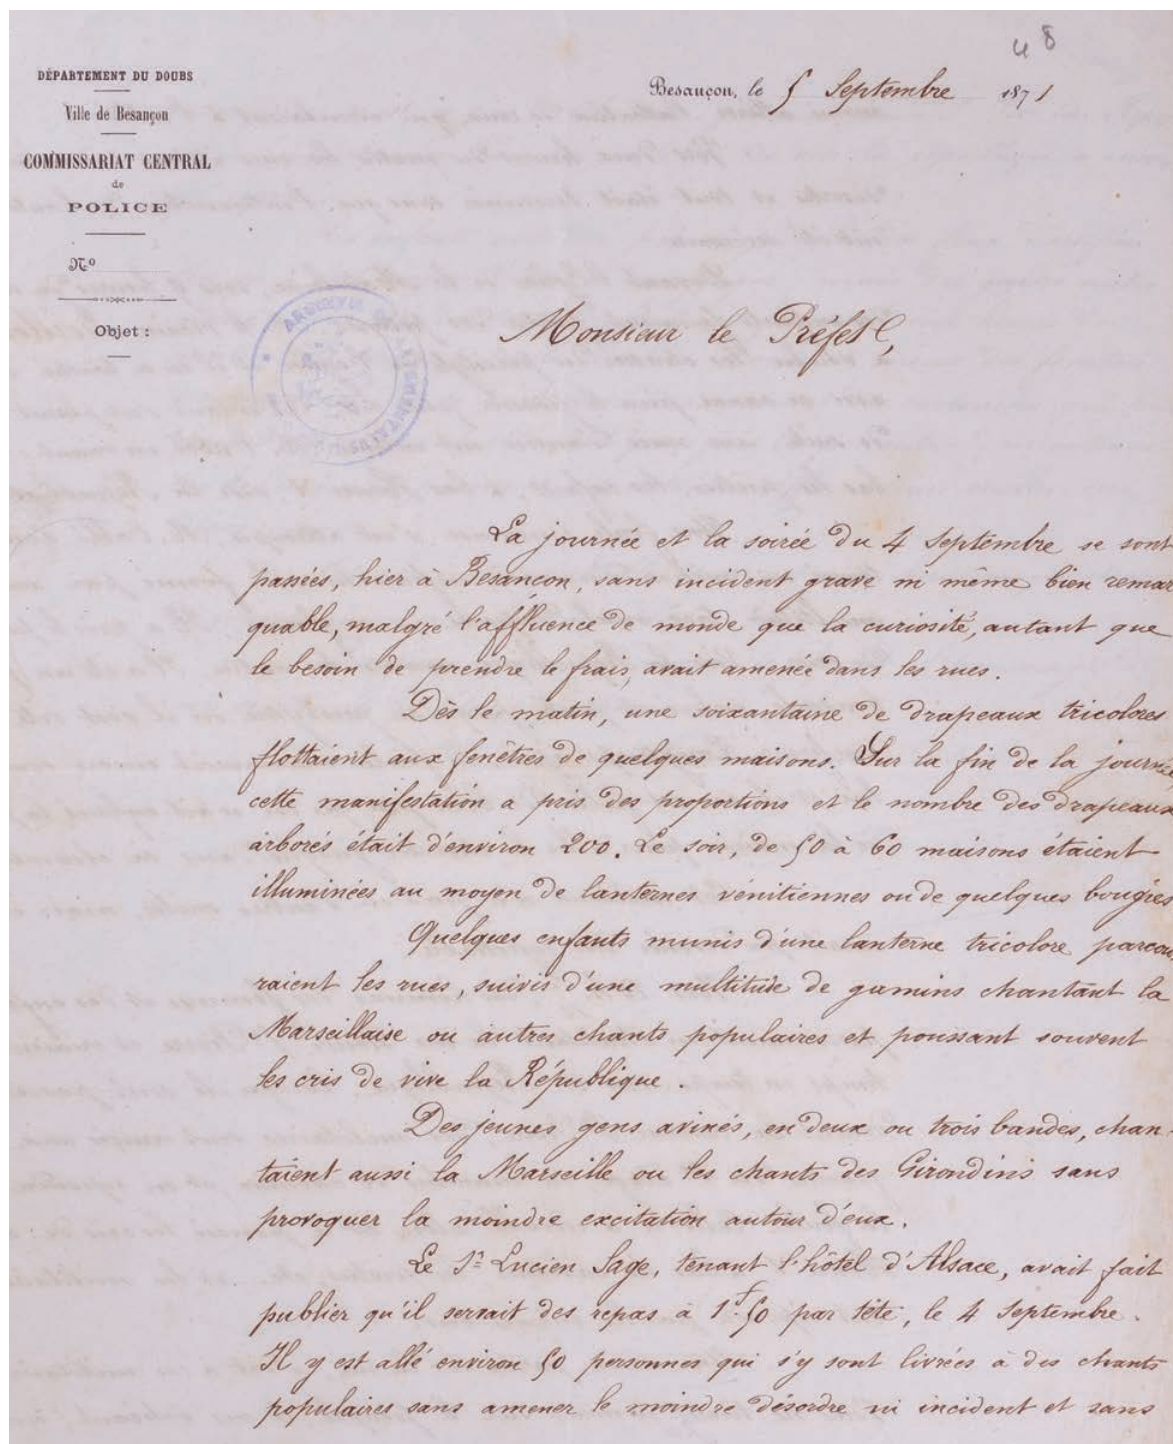 48
DÉPARTEMENT DU DOUBS
Ville de Besançon
COMMISSARIAT CENTRAL
de
POLICE
No
Objet :
Besançon, le 5 Septembre 1871
ARCHIVES
Monsieur le Préfet,
La journée et la soirée du 4 Septembre se sont
passées, hier à Besançon, sans incident grave ni même bien remar
quable, malgré l'affluence de monde que la curiosité, autant que
le besoin de prendre le frais, avait amenée dans les rues.
Dès le matin, une soixantaine de drapeaux tricolores
flottaient aux fenêtres de quelques maisons. Sur la fin de la journée
cette manifestation a pris des proportions et le nombre des drapeaux
arborés était d'environ 200. Le soir, de 50 à 60 maisons étaient
illuminées au moyen de lanternes vénitiennes ou de quelques bougies
Quelques enfants munis d'une lanterne tricolore parcou
raient les rues, suivis d'une multitude de gamins chantant la
Marseillaise ou autres chants populaires et poussant souvent
les cris de vive la République.
Des jeunes gens avinés, en deux ou trois bandes, chan-
taient aussi la Marseille ou les chants des Girondins sans
provoquer la moindre excitation autour d'eux.
Le Sr Lucien Sage, tenant l'hôtel d'Alsace, avait fait
publier qu'il servait des repas à 1f.50 par tête, le 4 Septembre.
Il y est allé environ 50 personnes qui s'y sont livrées à des chants
populaires sans amener le moindre désordre ni incident et sans